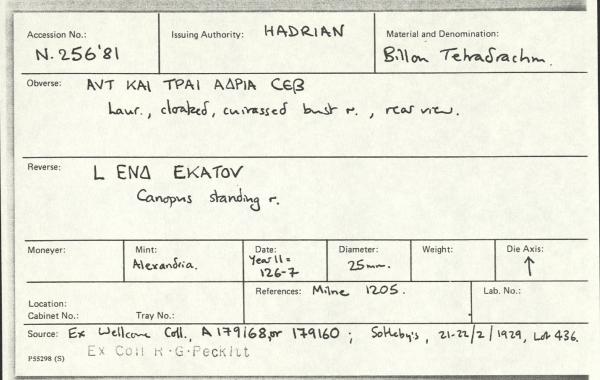 Accession No.: N.256'81
Issuing Authority: HADRIAN
Material and Denomination: Billon Tetradrachm.
Obverse: ΑVΤ ΚΑΙ ΤΡΑΙ ΑΔΡΙΑ CЄΒ
Laur., cloaked, cuirassed bust r., rear view.
Reverse: L ΕΝΔ ΕΚΑΤΟV
Canopus standing r.
Moneyer:
Mint: Alexandria.
Date: Year 11 = 126-7
Diameter: 25mm.
Weight:
Die Axis: ↑
Location:
Cabinet No.: Tray No.:
References: Milne 1205.
Lab. No.:
Source: Ex Wellcome Coll., A179168, or 179160; Sotheby's, 21-22/2/1929, Lot 436.
P55298 (S) Ex Coll R·G·Peckitt